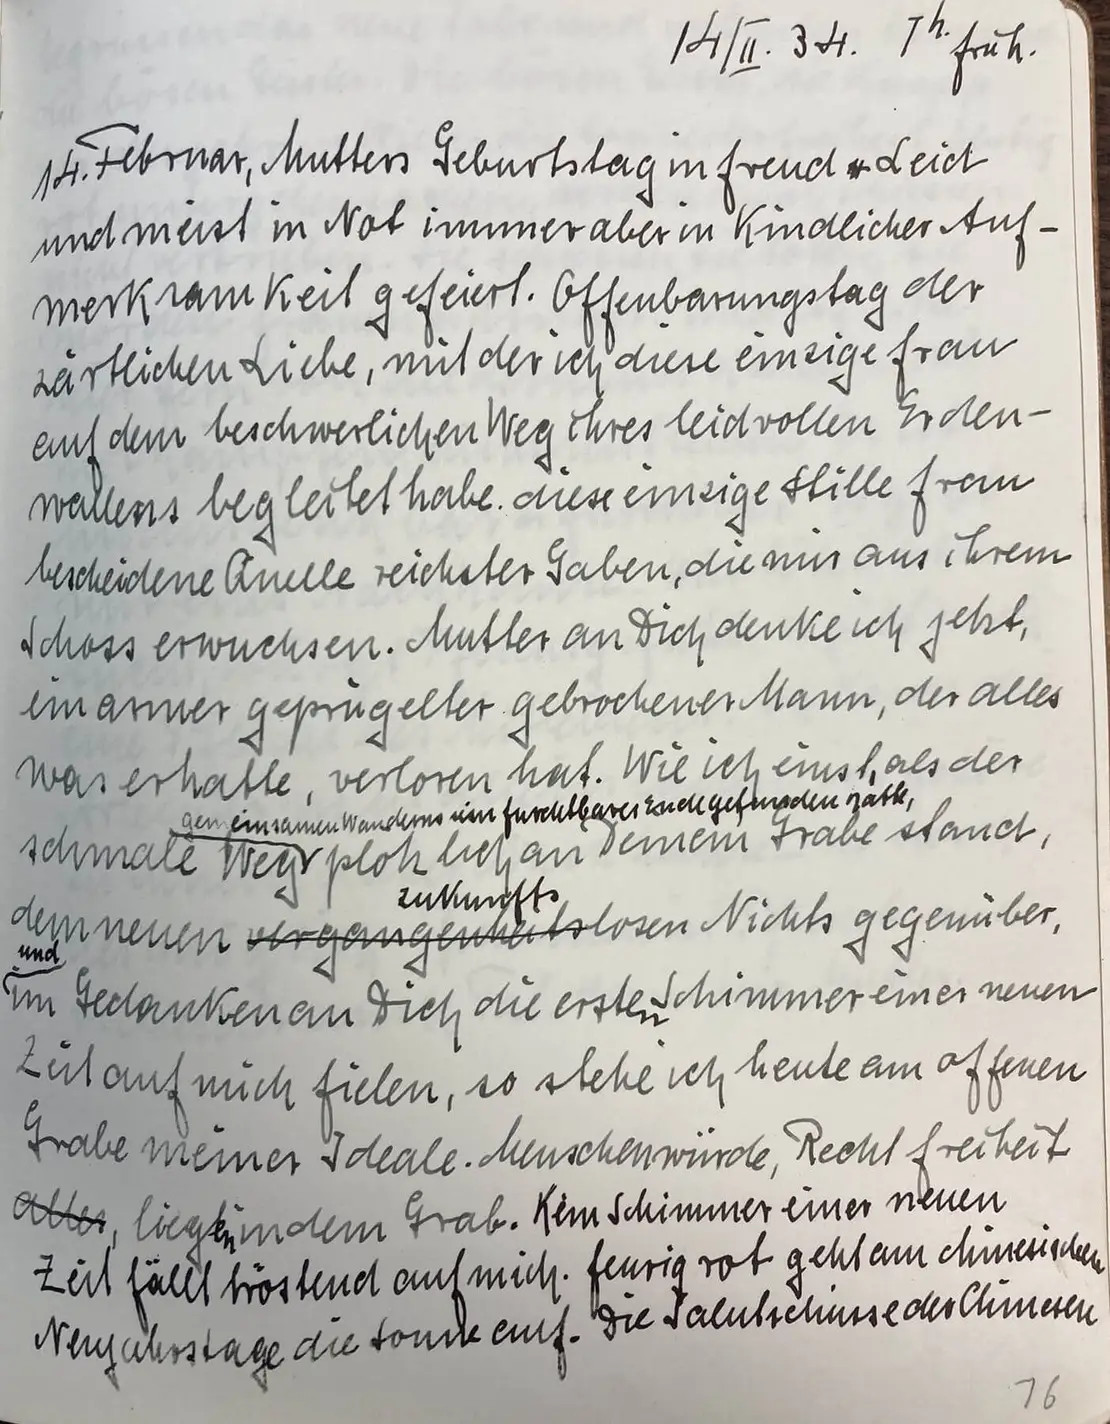 14/II. 34. 7h. früh.
14. Februar, Mutters Geburtstag in Freud u Leid
und meist in Not immer aber in Kindlicher Auf-
merksamkeit gefeiert. Offenbarungstag der
zärtlichen Liebe, mit der ich diese einzige Frau
auf dem beschwerlichen Weg ihres leidvollen Erden-
wallens begleitet habe. diese einzige stille Frau
bescheidene Quelle reichster Gaben, die mir aus ihrem
Schoss erwuchsen. Mutter an Dich denke ich jetzt,
ein armer geprügelter gebrochener Mann, der alles
was er hatte, verloren hat. Wie ich einst, als der
gemeinsamen Wanderns ein furchtbares Ende gefunden hatte,
schmale Weg plötzlich an Deinem Grabe stand,
zukunfts
dem neuen vergangenheitslosen Nichts gegenüber,
und
im Gedanken an Dich die ersten Schimmer einer neuen
Zeit auf mich fielen, so stehe ich heute am offenen
Grabe meiner Ideale. Menschenwürde, Recht Freiheit
alles, liegen in dem Grab. Kein Schimmer einer neuen
Zeit fällt tröstend auf mich. feurig rot geht am chinesischen
Neujahrstage die Sonne auf. Die Salutschüsse der Chinesen
76